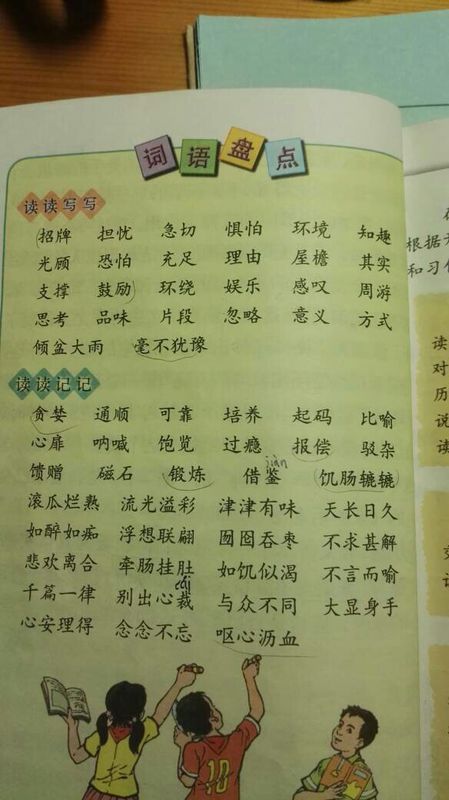 词语盘点
读读写写
招牌 担忧 急切 惧怕 环境 知趣
光顾 恐怕 充足 理由 屋檐 其实
支撑 鼓励 环绕 娱乐 感叹 周游
思考 品味 片段 忽略 意义 方式
倾盆大雨 毫不犹豫
读读记记
贪婪 通顺 可靠 培养 起码 比喻
心扉 呐喊 饱览 过瘾 报偿 驳杂
jiàn
馈赠 磁石 锻炼 借鉴 饥肠辘辘
滚瓜烂熟 流光溢彩 津津有味 天长日久
如醉如痴 浮想联翩 囫囵吞枣 不求甚解
悲欢离合 牵肠挂肚 如饥似渴 不言而喻
cái
千篇一律 别出心裁 与众不同 大显身手
心安理得 念念不忘 呕心沥血
10
根据
和习
读
对
历
说
读